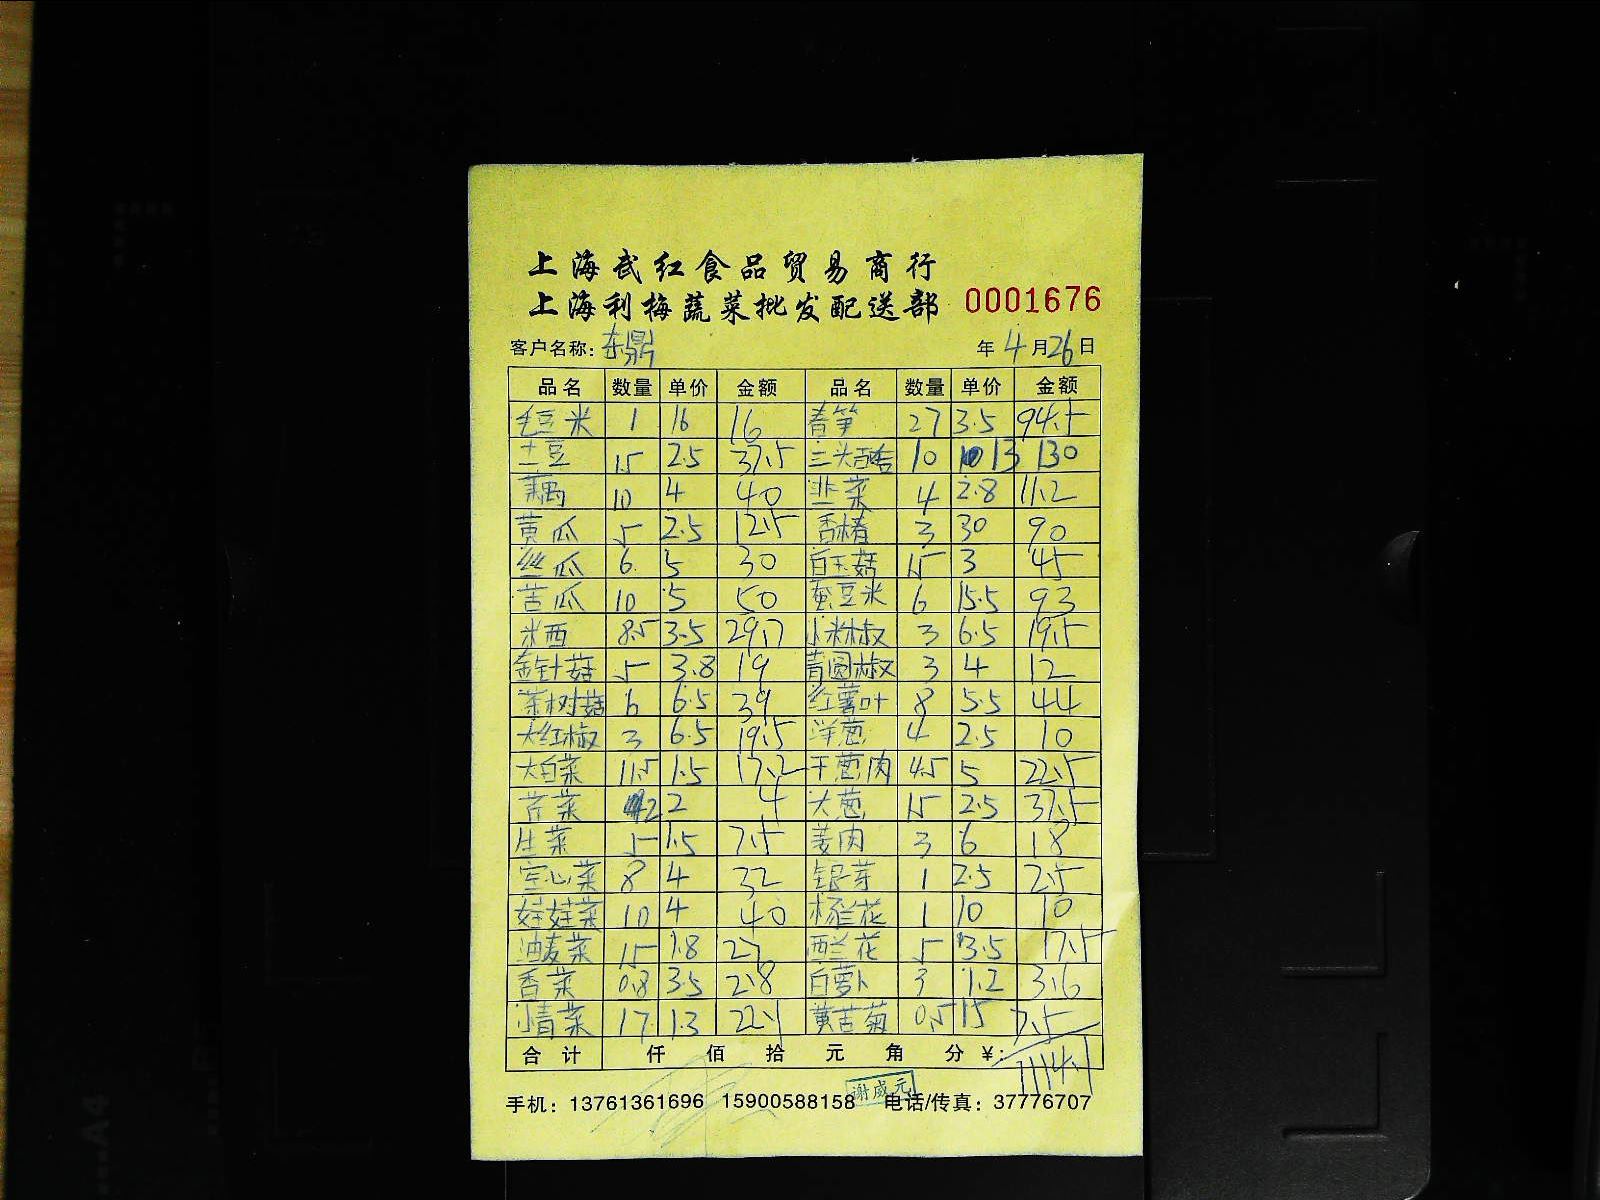 上海武红食品贸易商行
上海利梅蔬菜批发配送部 0001676
客户名称: 东鼎 年 4 月 26 日
品名 数量 单价 金额 品名 数量 单价 金额
毛豆米 1 16 16 春笋 27 3.5 94.5
土豆 15 2.5 37.5 三头 10 13 130
藕 10 4 40 韭菜 4 2.8 11.2
黄瓜 5 2.5 12.5 香椿 3 30 90
丝瓜 6 5 30 白玉菇 15 3 45
苦瓜 10 5 50 蚕豆米 6 15.5 93
米西 8.5 3.5 29.7 小米椒 3 6.5 19.5
金针菇 5 3.8 19 青圆椒 3 4 12
茶树菇 6 6.5 39 红薯叶 8 5.5 44
大红椒 3 6.5 19.5 洋葱 4 2.5 10
大白菜 11.5 1.5 17.2 干葱肉 4.5 5 22.5
芹菜 2 2 4 大葱 15 2.5 37.5
生菜 5 1.5 7.5 姜肉 3 6 18
空心菜 8 4 32 银芽 1 2.5 2.5
娃娃菜 10 4 40 杨兰花 1 10 10
油麦菜 15 1.8 27 西兰花 5 3.5 17.5
香菜 0.8 3.5 2.8 白萝卜 3 1.2 3.6
小青菜 17 1.3 22.1 黄苦菊 0.5 15 7.5
合计 仟 佰 拾 元 角 分 ¥: 1114.1
谢成元
手机: 13761361696 15900588158 电话/传真: 37776707